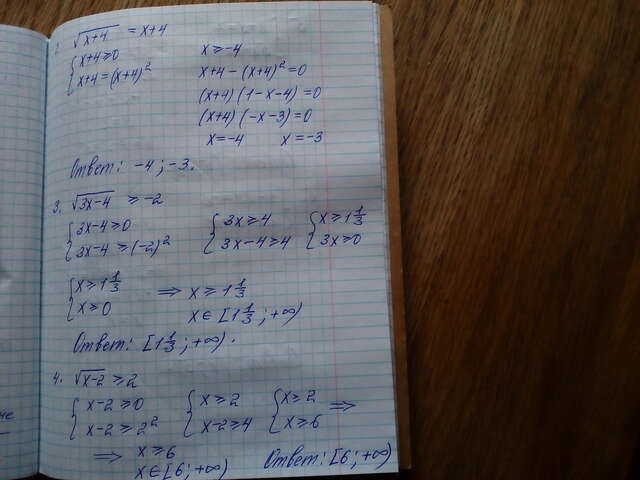 √x+4 = x+4
{ x+4≥0
x+4=(x+4)²
x≥-4
x+4-(x+4)²=0
(x+4)(1-x-4)=0
(x+4)(-x-3)=0
x=-4 x=-3
Ответ: -4; -3.
3. √3x-4 ≥-2
{ 3x-4≥0
3x-4≥(-2)²
{ 3x≥4
3x-4≥4
{ x≥1 1/3
3x≥0
{ x≥1 1/3
x≥0
⇒ x≥1 1/3
x∈[1 1/3; +∞)
Ответ: [1 1/3; +∞).
4. √x-2 ≥2
{ x-2≥0
x-2≥2²
{ x≥2
x-2≥4
{ x≥2
x≥6 ⇒
⇒ x≥6
x∈[6; +∞)
Ответ: [6; +∞)